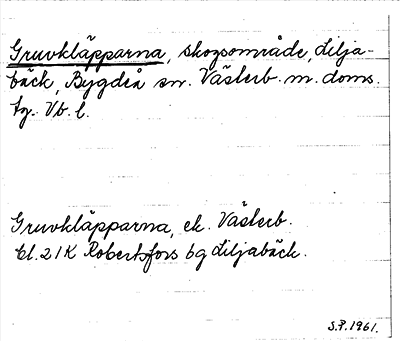 Gruvkläpparna, skogsområde, Lilja-
bäck, Bygdeå sn. Västerb. m. doms.
tg. Vb. l.
Gruvkläpparna, ek. Västerb.
bl. 21K Robertsfors 6g Liljabäck.
S.P. 1961.